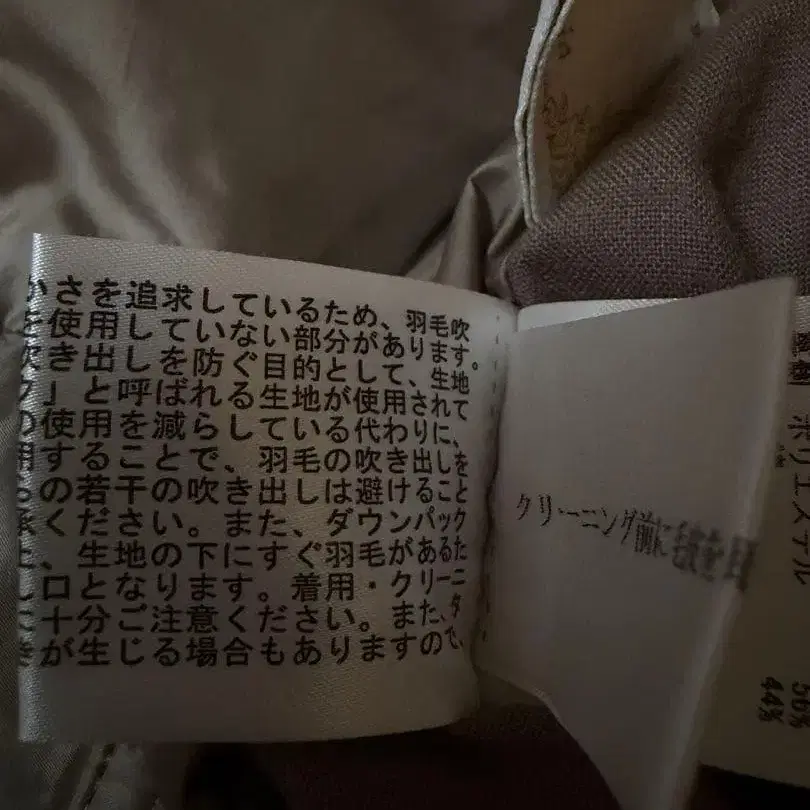 かさを追求しているため、羽毛吹
を使用していない部分があります。
吹き出しを防ぐ目的として、生地
ク」と呼ばれる生地が使用されて
の使用を減らしている代わりに、
用することで、羽毛の吹き出しを
らの若干の吹き出しは避けること
承ください。また、ダウンパック
に、生地の下にすぐ羽毛があるた
し口となります。着用・クリーニ
に十分ご注意ください。また、ダ
きが生じる場合もありますので、
クリーニング前に毛皮を
ポリエステル
56%
44%